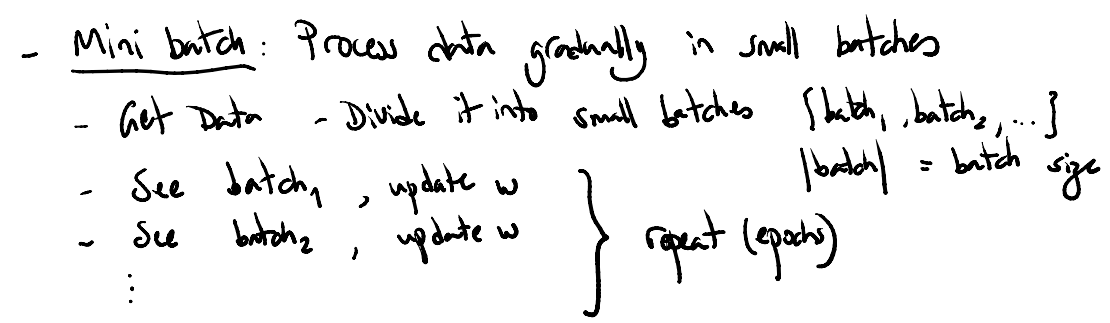 - Mini batch: Process data gradually in small batches
- Get Data - Divide it into small batches [batch₁, batch₂, ...]
|batch| = batch size
- See batch₁, update w
- See batch₂, update w
repeat (epochs)
⋮